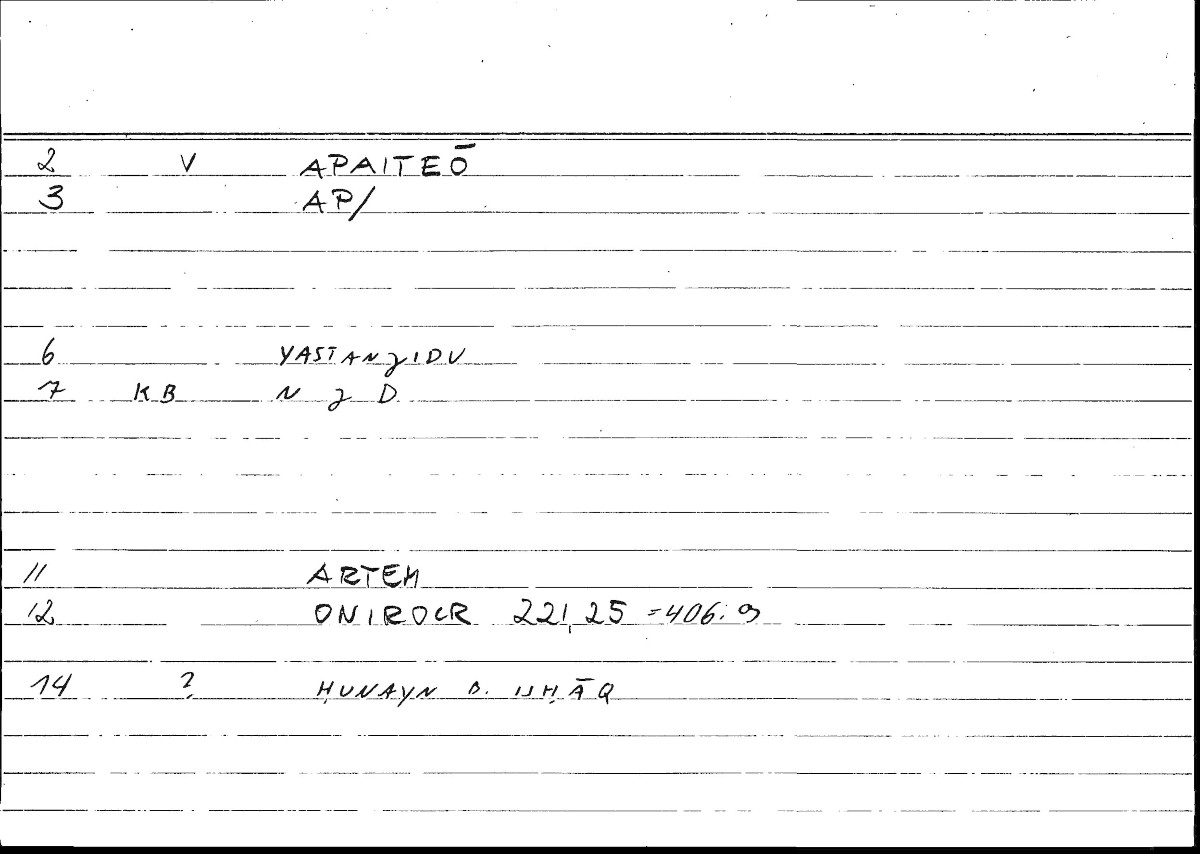 2 V APAITEŌ
3 AP/
6 YASTANJIDU
7 KB N J D
11 ARTEM
12 ONIROCR 221,25 =406:9
14 ? ḤUNAYN B. ISḤĀQ